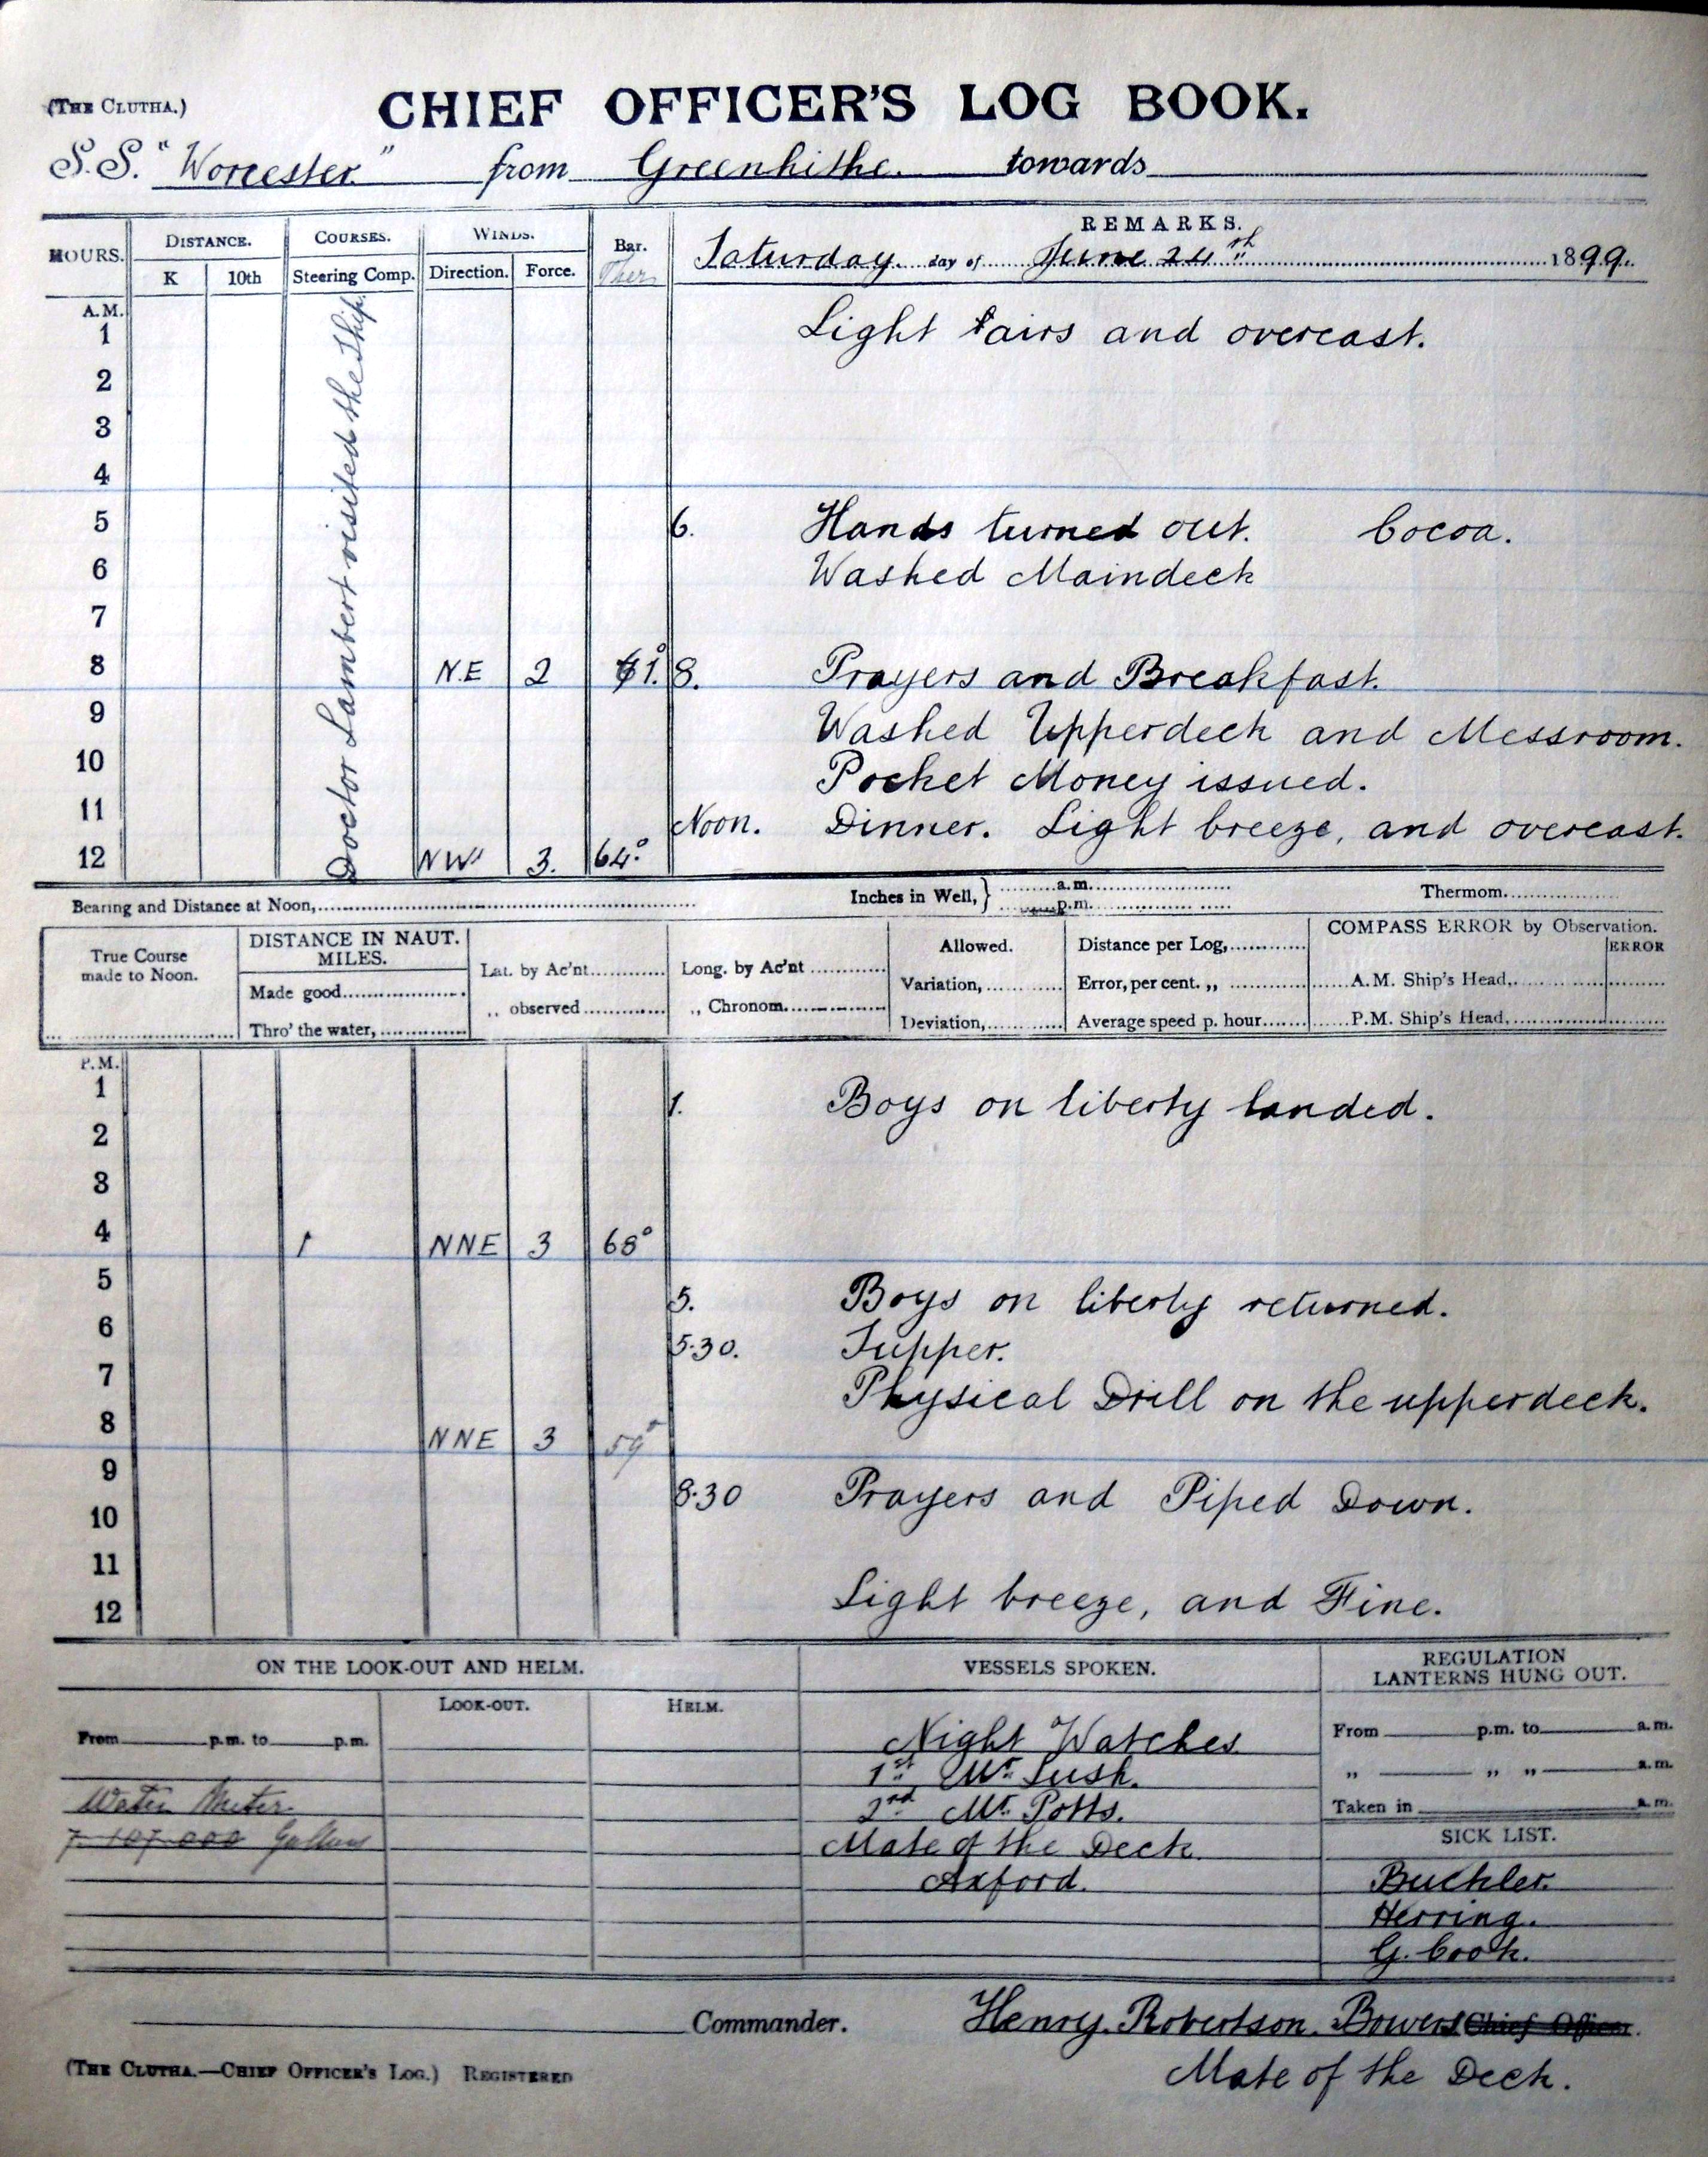 (THE CLUTHA.)
CHIEF OFFICER'S LOG BOOK.
S.S. "Worcester." from Greenhithe. towards
HOURS. DISTANCE. COURSES. WINDS. Bar. REMARKS.
K 10th Steering Comp. Direction. Force. Ther Saturday. day of June 24th 1899.
A.M.
1 Light airs and overcast.
2
3
4
5 6. Hands turned out. Cocoa.
6 Washed Maindeck
7
8 N.E 2 61.° 8. Prayers and Breakfast.
9 Washed Upperdeck and Messroom.
10 Pocket Money issued.
11 Noon. Dinner. Light breeze, and overcast.
12 NW 3. 64.°
Doctor Lambert visited the Ship.
Bearing and Distance at Noon, Inches in Well, } a.m. Thermom.
p.m.
True Course made to Noon.
DISTANCE IN NAUT. MILES.
Made good
Thro' the water,
Lat. by Ac'nt
,, observed
Long. by Ac'nt
,, Chronom.
Allowed.
Variation,
Deviation,
Distance per Log,
Error, per cent. ,,
Average speed p. hour
COMPASS ERROR by Observation.
ERROR
A.M. Ship's Head,
P.M. Ship's Head,
P.M.
1 1. Boys on liberty landed.
2
3
4 NNE 3 68°
5 5. Boys on liberty returned.
6 5.30. Supper.
7 Physical Drill on the upperdeck.
8 NNE 3 59°
9
10 8.30 Prayers and Piped Down.
11
12 Light breeze, and Fine.
ON THE LOOK-OUT AND HELM.
LOOK-OUT. HELM.
From p.m. to p.m.
Water Meter.
7.107.000 Gallons
VESSELS SPOKEN.
Night Watches
1st. Mr. Lush.
2nd. Mr. Potts.
Mate of the Deck
Axford.
REGULATION
LANTERNS HUNG OUT.
From p.m. to a.m.
,, ,, ,, a.m.
Taken in a.m.
SICK LIST.
Buckler.
Herring.
G. Cook.
Commander. Henry. Robertson. Bowers Chief Officer.
Mate of the Deck.
(THE CLUTHA.—CHIEF OFFICER'S LOG.) REGISTERED